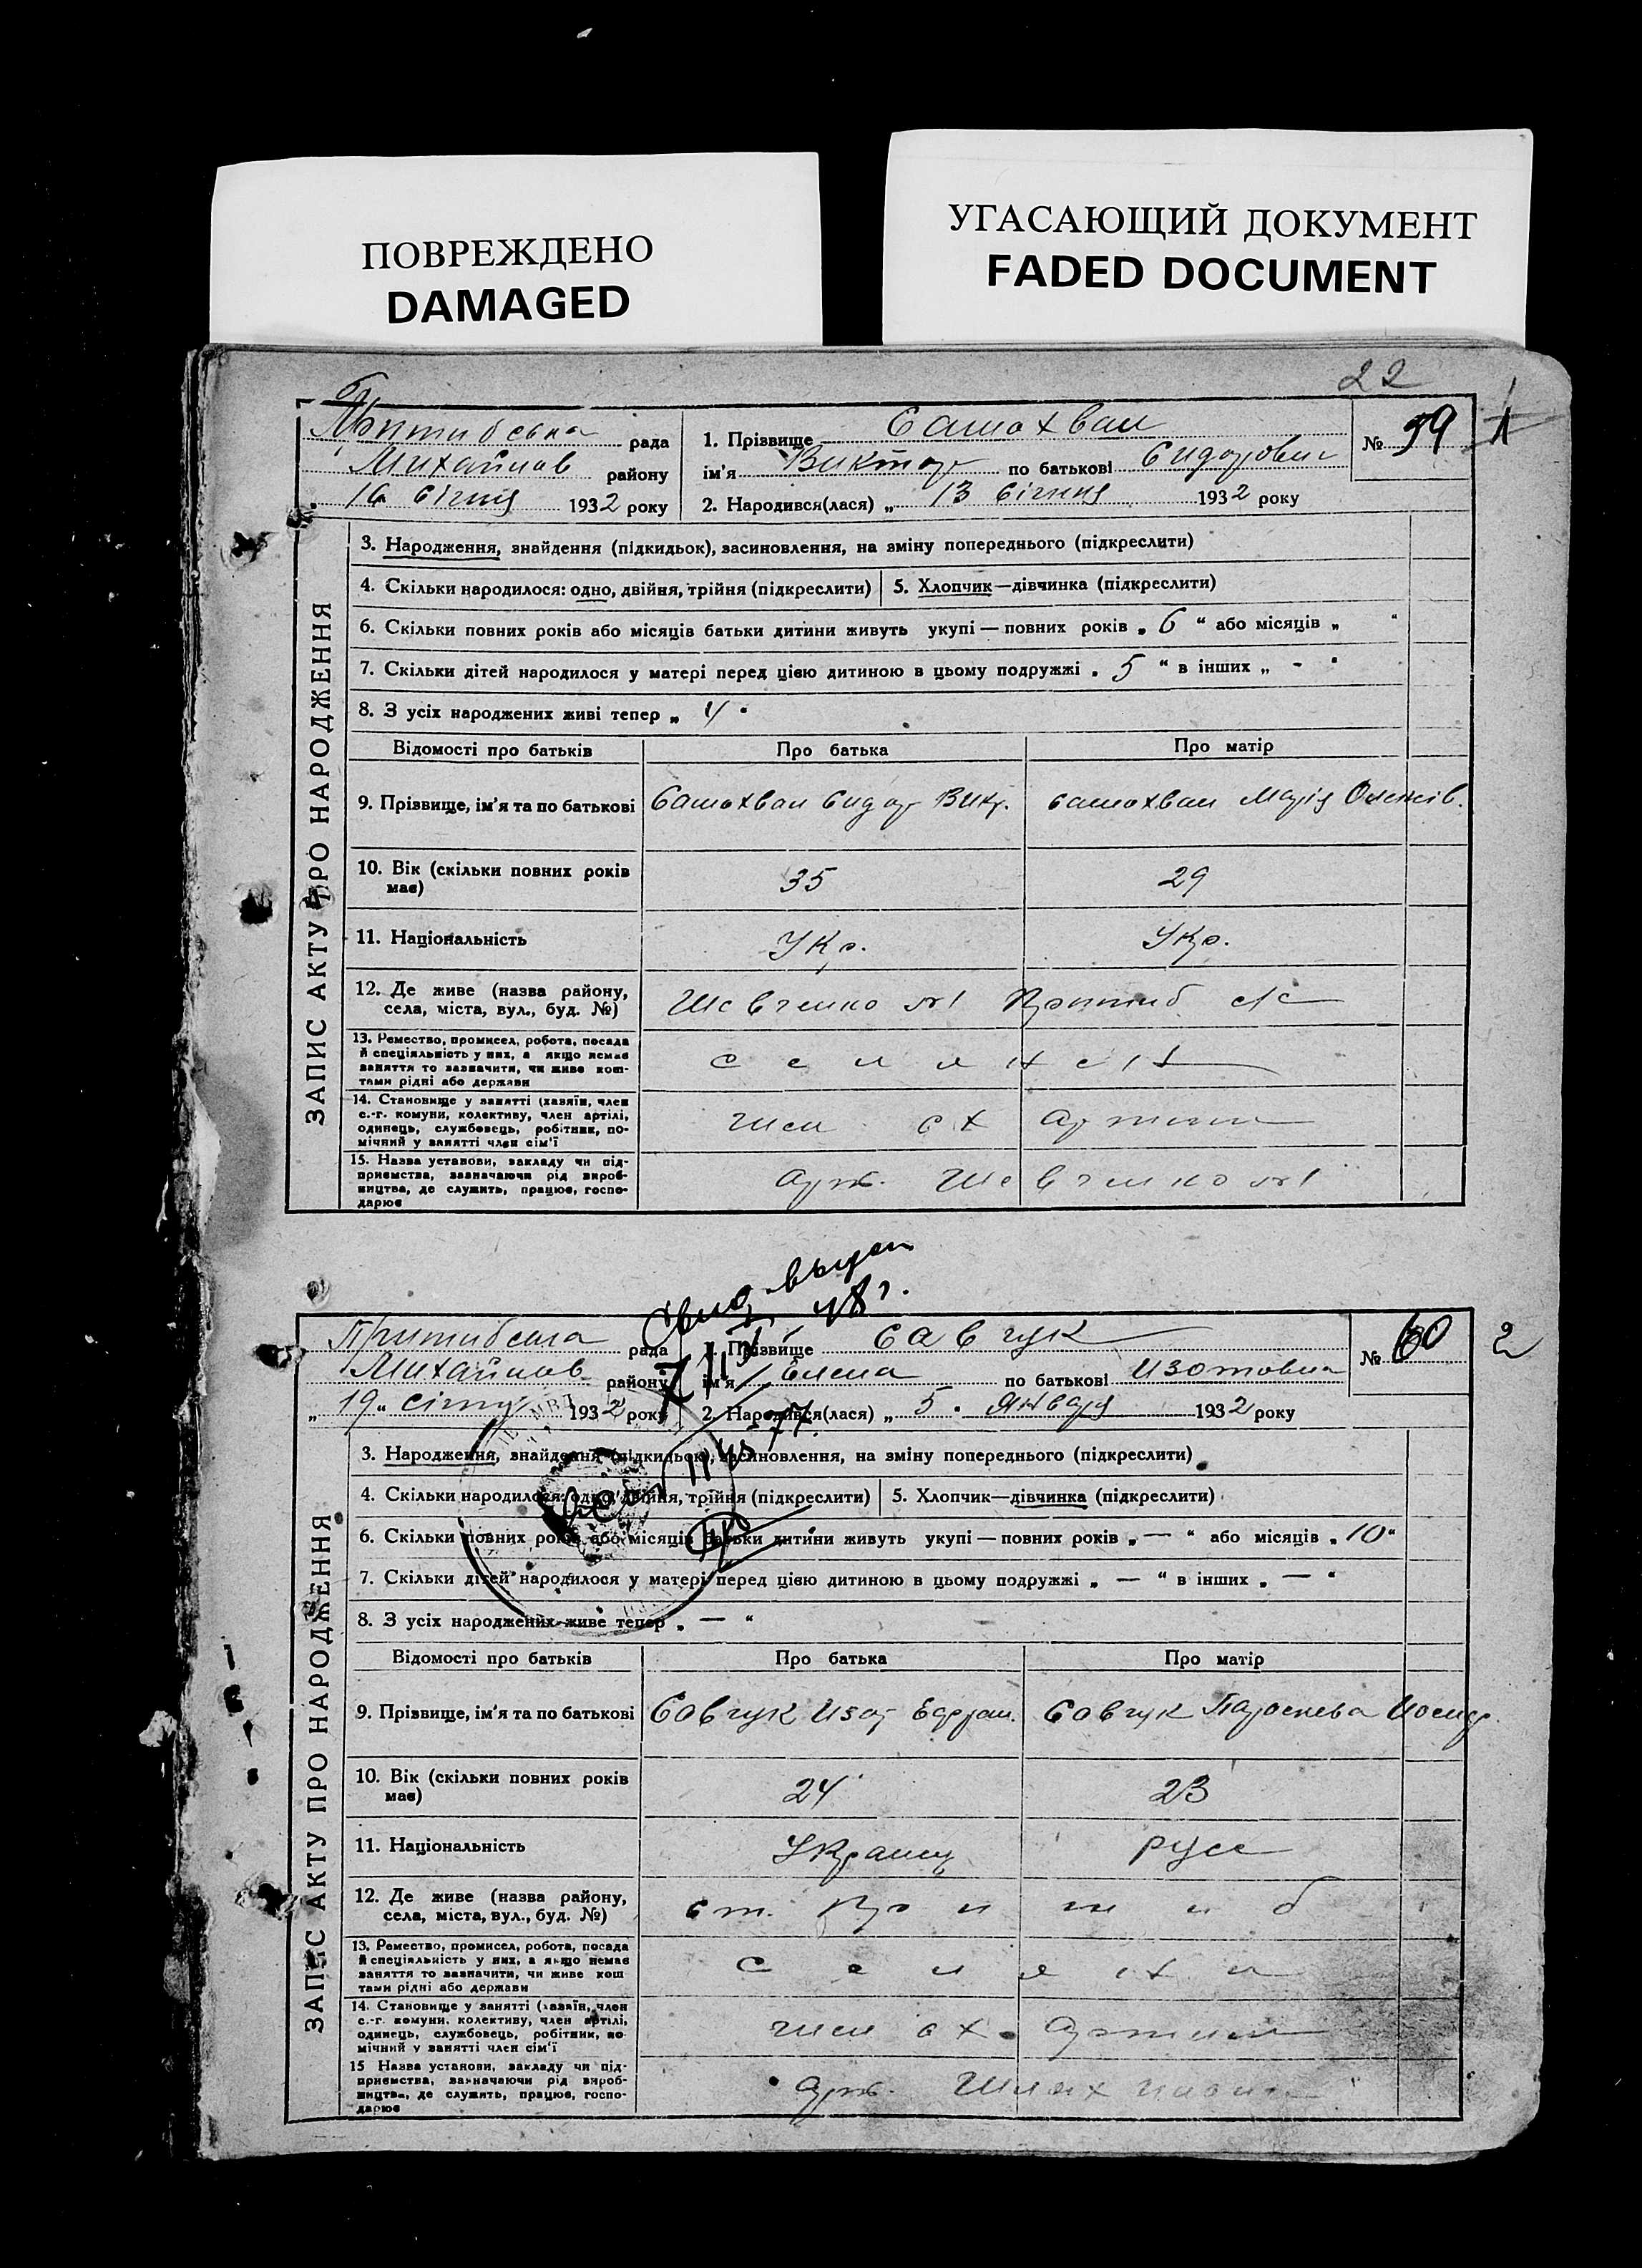 ПОВРЕЖДЕНО
DAMAGED
УГАСАЮЩИЙ ДОКУМЕНТ
FADED DOCUMENT
22
рада
Михайлов району
16 січня 1932 року
1. Прізвище Самохвал
ім'я Виктор по батькові Сидорович
2. Народився(лася) „ 13 січня 1932 року
№ 59
1
ЗАПИС АКТУ ПРО НАРОДЖЕННЯ
3. Народження, знайдення (підкидьок), засиновлення, на зміну попереднього (підкреслити)
4. Скільки народилося: одно, двійня, трійня (підкреслити) 5. Хлопчик—дівчинка (підкреслити)
6. Скільки повних років або місяців батьки дитини живуть укупі — повних років „ 6 “ або місяців „ “
7. Скільки дітей народилося у матері перед цією дитиною в цьому подружжі „ 5 “ в інших „ - “
8. З усіх народжених живі тепер „ 4 “
Відомості про батьків Про батька Про матір
9. Прізвище, ім'я та по батькові Самохвал Сидор Вікт. Самохвал Марія
10. Вік (скільки повних років має) 35 29
11. Національність Укр. Укр.
12. Де живе (назва району,
села, міста, вул., буд. №) Шевченко №1 с/с
13. Ремество, промисел, робота, посада
й спеціяльність у них, а якщо немає
заняття то зазначити, чи живе кош-
тами рідні або держави селяне
14. Становище у занятті (хазяїн, член
с.-г. комуни, колективу, член артілі,
одинець, службовець, робітник, по-
мічний у занятті член сім'ї член с х артили
15. Назва установи, закладу чи під-
приємства, зазначаючи рід вироб-
ництва, де служить, працює, госпо-
дарює арт. Шевченко №1
Свид. выдан
48 г.
рада
Михайлов району
„ 19 “ січня 1932 року
1. Прізвище Савчук
ім'я Елена по батькові Изотовна
2. Народився(лася) „ 5 “ Января 1932 року
№ 60
2
ЗАПИС АКТУ ПРО НАРОДЖЕННЯ
3. Народження, знайдення (підкидьок), засиновлення, на зміну попереднього (підкреслити)
4. Скільки народилося: одно, двійня, трійня (підкреслити) 5. Хлопчик—дівчинка (підкреслити)
6. Скільки повних років або місяців батьки дитини живуть укупі — повних років „ — “ або місяців „ 10 “
7. Скільки дітей народилося у матері перед цією дитиною в цьому подружжі „ — “ в інших „ — “
8. З усіх народжених живе тепер „ — “
Відомості про батьків Про батька Про матір
9. Прізвище, ім'я та по батькові Савчук Изот Ефрем. Савчук Параскева Иосиф.
10. Вік (скільки повних років має) 24 23
11. Національність Украинц русс
12. Де живе (назва району,
села, міста, вул., буд. №) ст.
13. Ремество, промисел, робота, посада
й спеціяльність у них, а якщо немає
заняття то зазначити, чи живе кош
тами рідні або держави селяни
14. Становище у занятті (хазяїн, член
с.-г. комуни, колективу, член артілі,
одинець, службовець, робітник, по-
мічний у занятті член сім'ї член с х артили
15 Назва установи, закладу чи під-
приємства, зазначаючи рід вироб-
ництва, де служить, працює, госпо-
дарює арт. Шлях